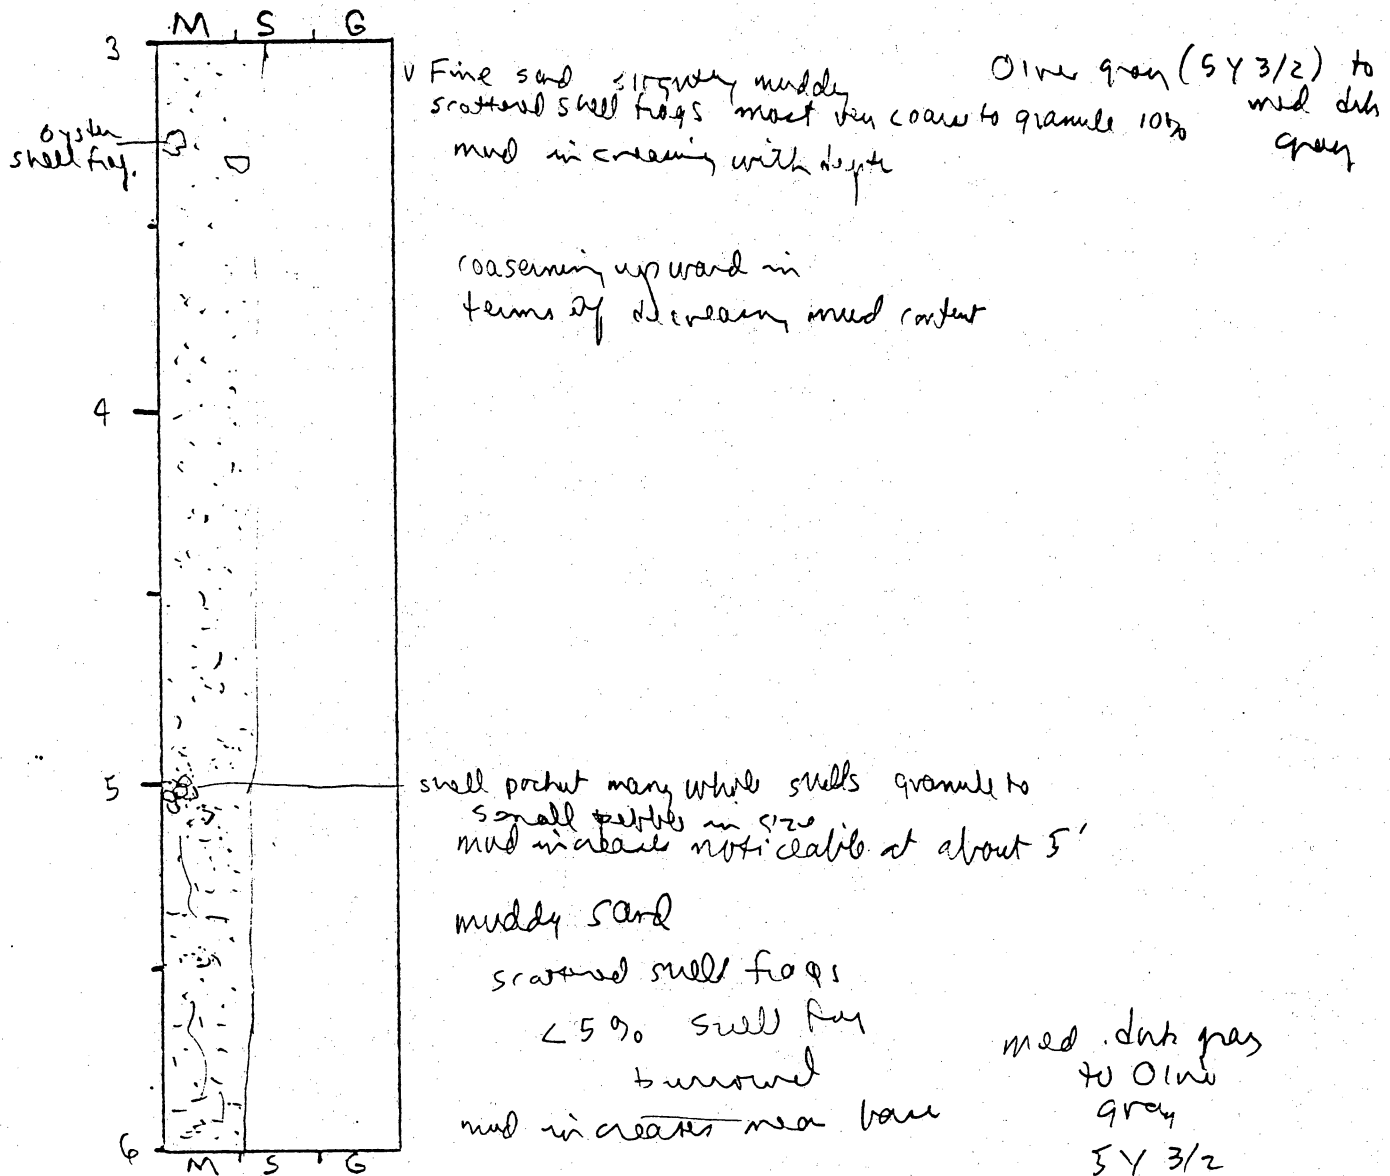 M S G
3
V Fine sand slightly muddy
Olive gray (5Y 3/2) to
med drk
gray
scattered shell frags most very coarse to granule 10%
mud increasing with depth
oyster
shell frag.
coasening upward in
terms of decreasing mud content
4
5
shell pocket many whole shells granule to
small pebble in size
mud increases noticeable at about 5'
muddy sand
scattered shell frags
<5% shell frag
burrowed
mud increases near base
med. drk gray
to Olive
gray
5Y 3/2
6
M S G